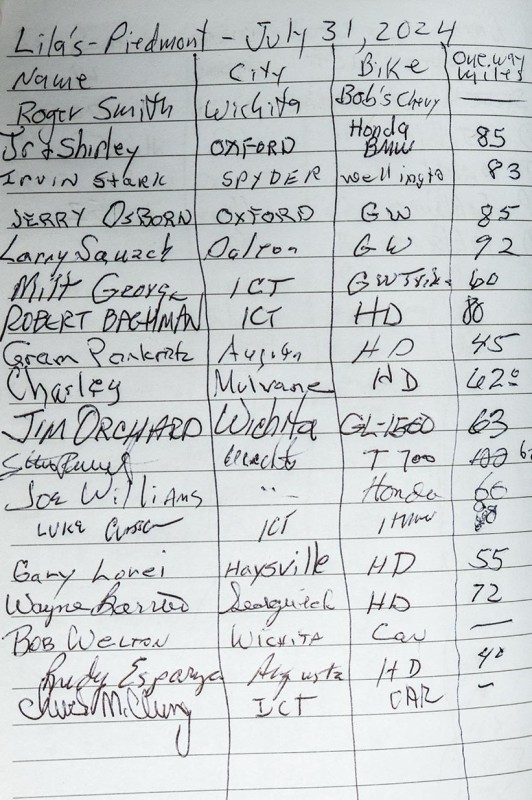 Lila's - Piedmont - July 31, 2024
Name City Bike one way miles
Roger Smith Wichita Bob's Chevy —
Jr & Shirley OXFORD Honda BMW 85
Irvin Stark SPYDER Wellingto 83
JERRY OSBORN OXFORD GW 85
Larry Dalton GW 92
Milt George ICT GW Trike 60
ROBERT BAGHMAN ICT HD
Gram Pankratz HD 45
Charley Mulvane HD 62
JIM ORCHARD Wichita GL-1500 63
T 700
Joe Williams " Honda 60
LUKE ICT
Gary Lovei Haysville HD 55
Wayne HD 72
BOB WELTON WICHITA Car —
Rudy Esparza Augusta HD 40
McClung ICT CAR —